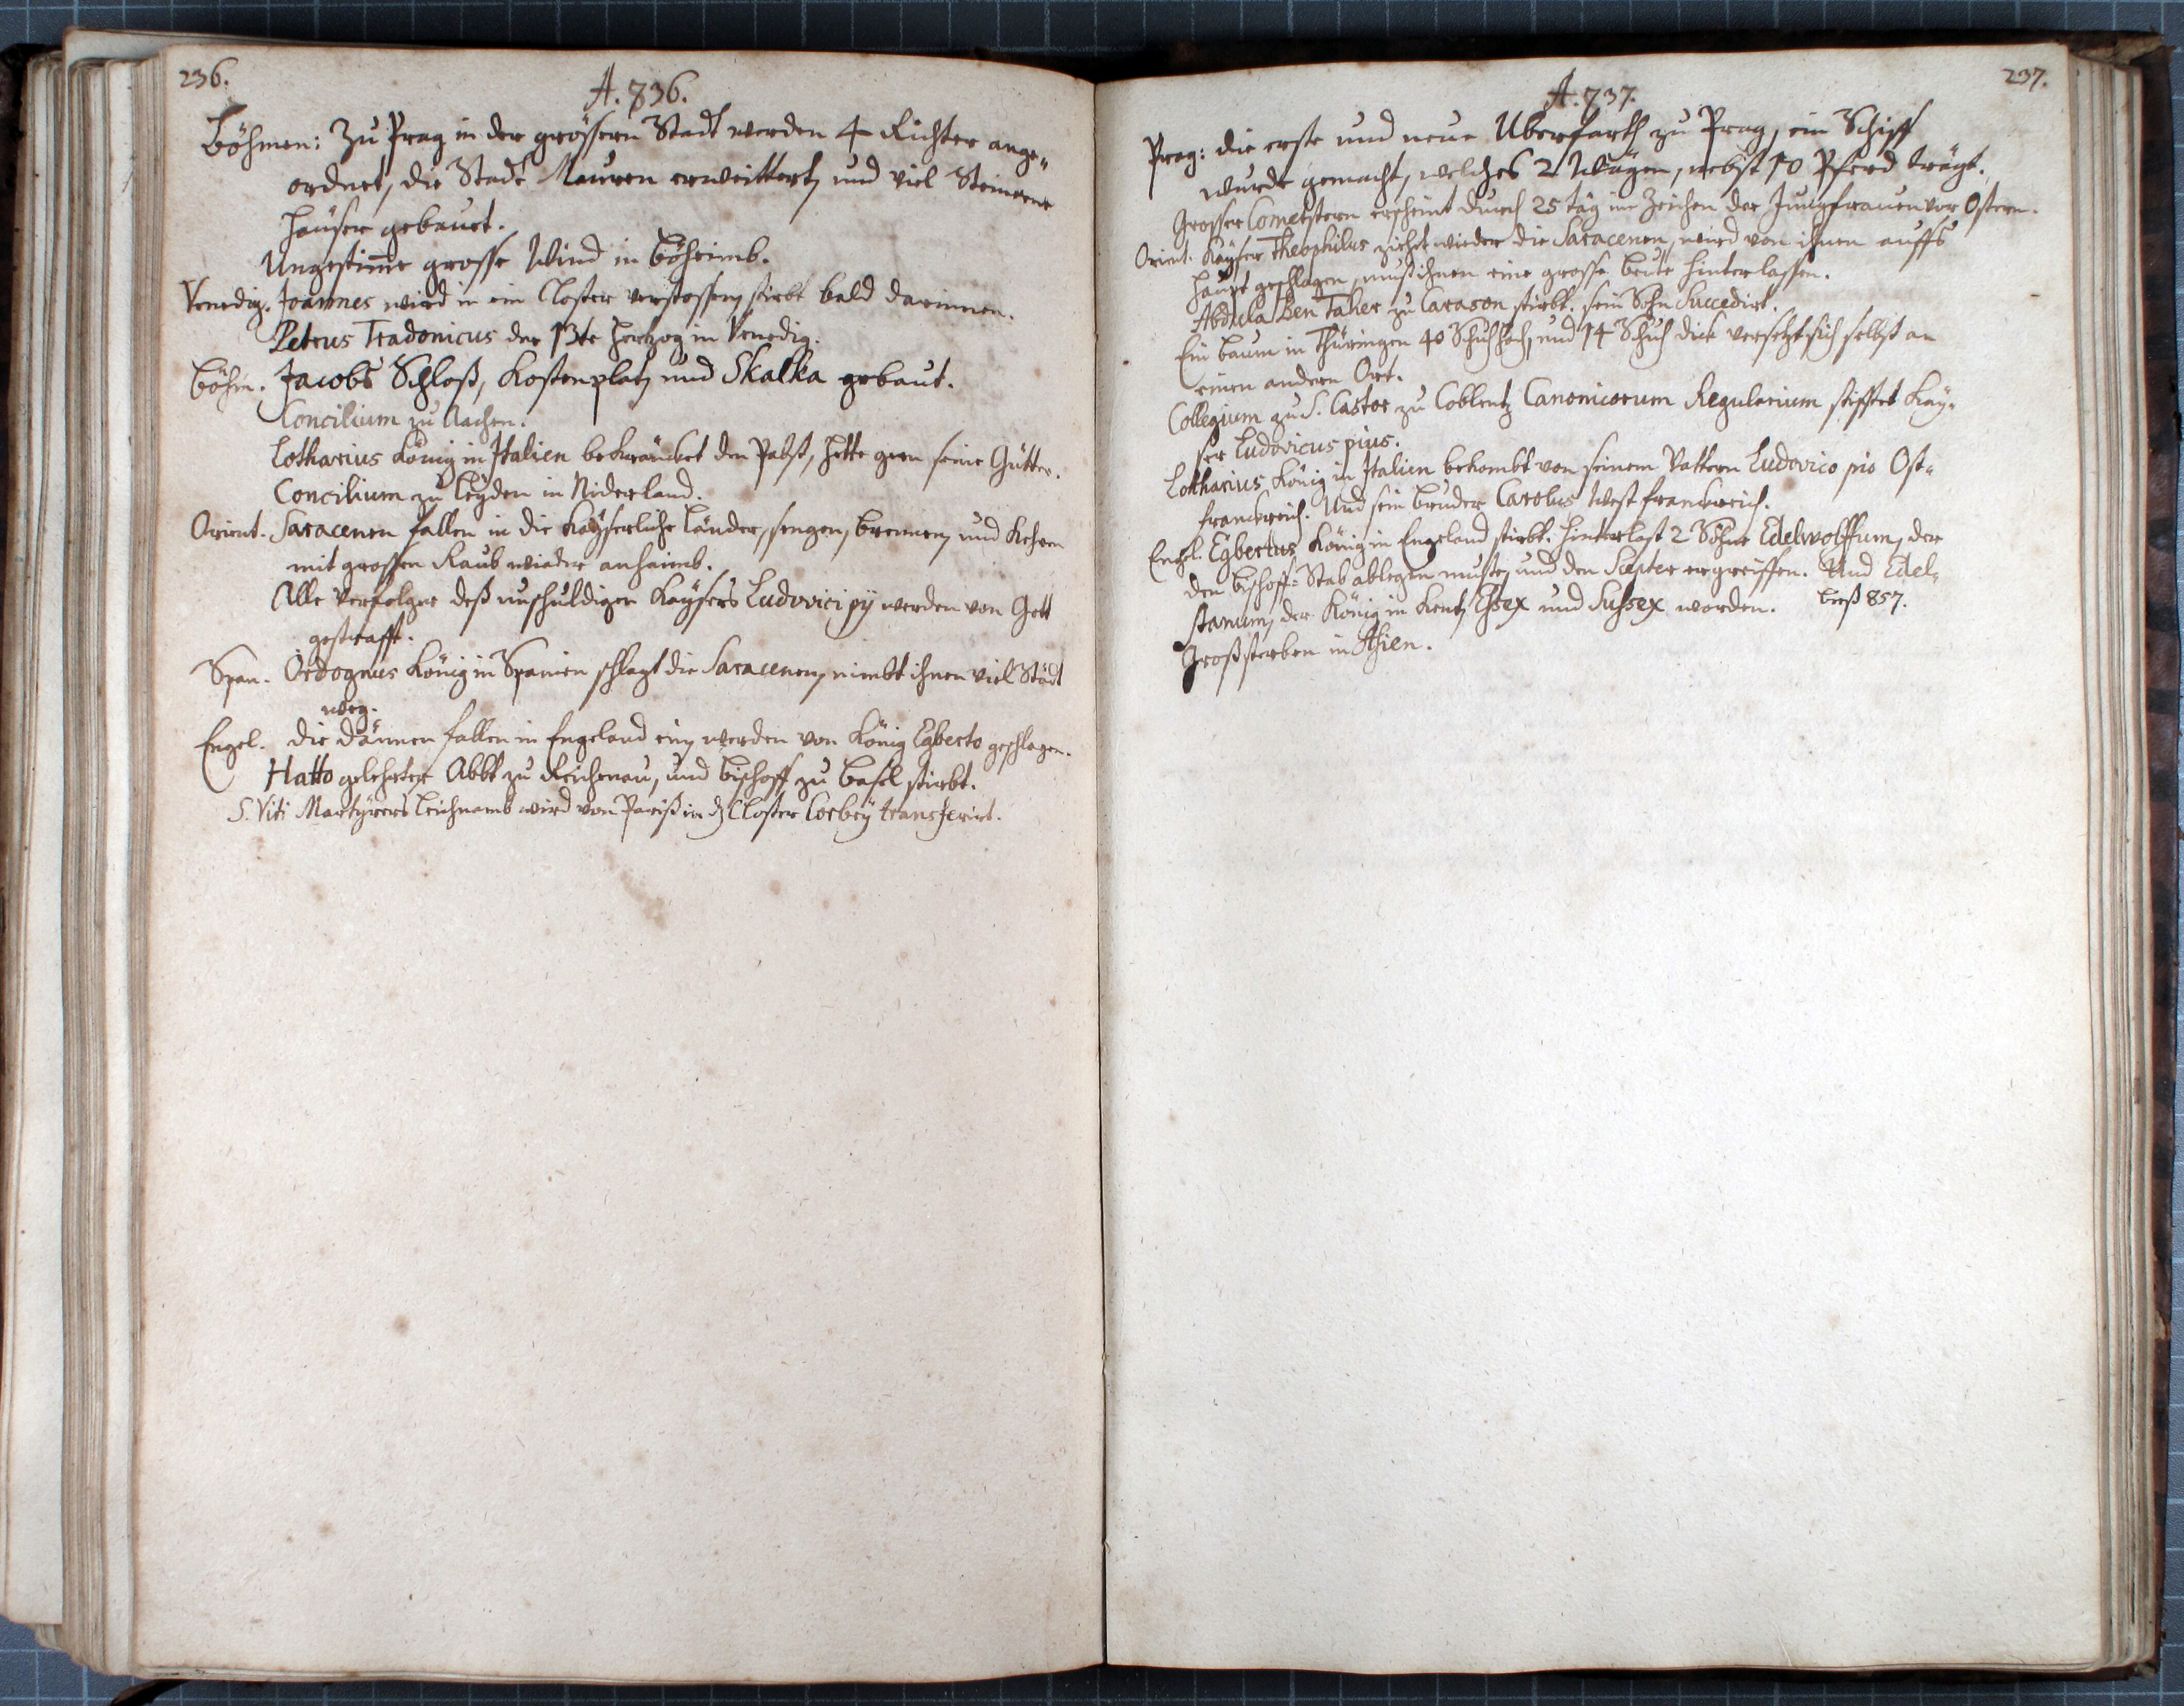 236.
A. 836.
Böhmen: Zu Prag in der grössern Stadt werden 4 Richter ange„
ordnet, die Stadt Mauren erweittert, und viel Steinerne
Häuser gebauet.
Ungestime grosse Wind in Böheimb.
Venedig. Joannes wird in ein Closter verstossen, stirbt bald darinnen.
Petrus Tradonicus der 13te Hertzog in Venedig.
Böhm. Jacobs Schloß, Kostenplatz und Skalka gebaut.
Concilium zu Aachen.
Lotharius König in Italien bekräncket den Pabst, hette gern seine Gütter.
Concilium zu Leyden in Niderland.
Orient. Saracenen fallen in die Kayserliche Länder, sengen, brennen, und kehren
mit grossen Raub wieder anheimb.
Alle Verfolger deß unschuldigen Kaysers Ludovici pij werden von Gott
gestrafft.
Span. Ordognus König in Spanien schlagt die Saracenen, nimbt ihnen viel Städt
weg.
Engel. Die Dännen fallen in Engeland ein, werden von König Egberto geschlagen.
Hatto gelehrter Abbt zu Reichenau, und Bischoff zu Basel stirbt.
S. Viti Martyrers Leichnamb wird von Pariß in dz Closter Corbey transferirt.
237.
A. 837.
Prag: die erste und neue Uberfarth zu Prag, ein Schiff
wurde gemacht, welches 2 Wägen, nebst 10 Pferd trägt.
Grosser Cometstern erscheint durch 25 täg im Zeichen der Jungfrauen vor Ostern.
Orient. Kayser Theophilus ziehet wieder die Saracenen, wird von ihnen auffs
Haupt geschlagen, muß ihnen eine grosse Beute hinterlassen.
Abdula Ben Taher zu Carason stirbt. sein Sohn Succedirt.
Ein Baum in Thüringen 40 Schuh hoch, und 14 Schuh dick versetzt sich selbst an
einen andern Ort.
Collegium zu S. Castor zu Coblentz Canonicorum Regularium stifftet Kay„
ser Ludovicus pius.
Lotharius König in Italien bekombt von seinem Vattern Ludovico pio Ost„
franckreich. Und sein Bruder Carolus West franckreich.
Engl. Egbertus König in Engeland stirbt. hinterlast 2 Söhne Edelwolffum, der
den Bischoff-Stab ablegen muste, und den Scepter ergreiffen. Und Edel„
stanum, der König in Kent, Essex und Sussex worden. Ließ 857.
Groß sterben in Asien.